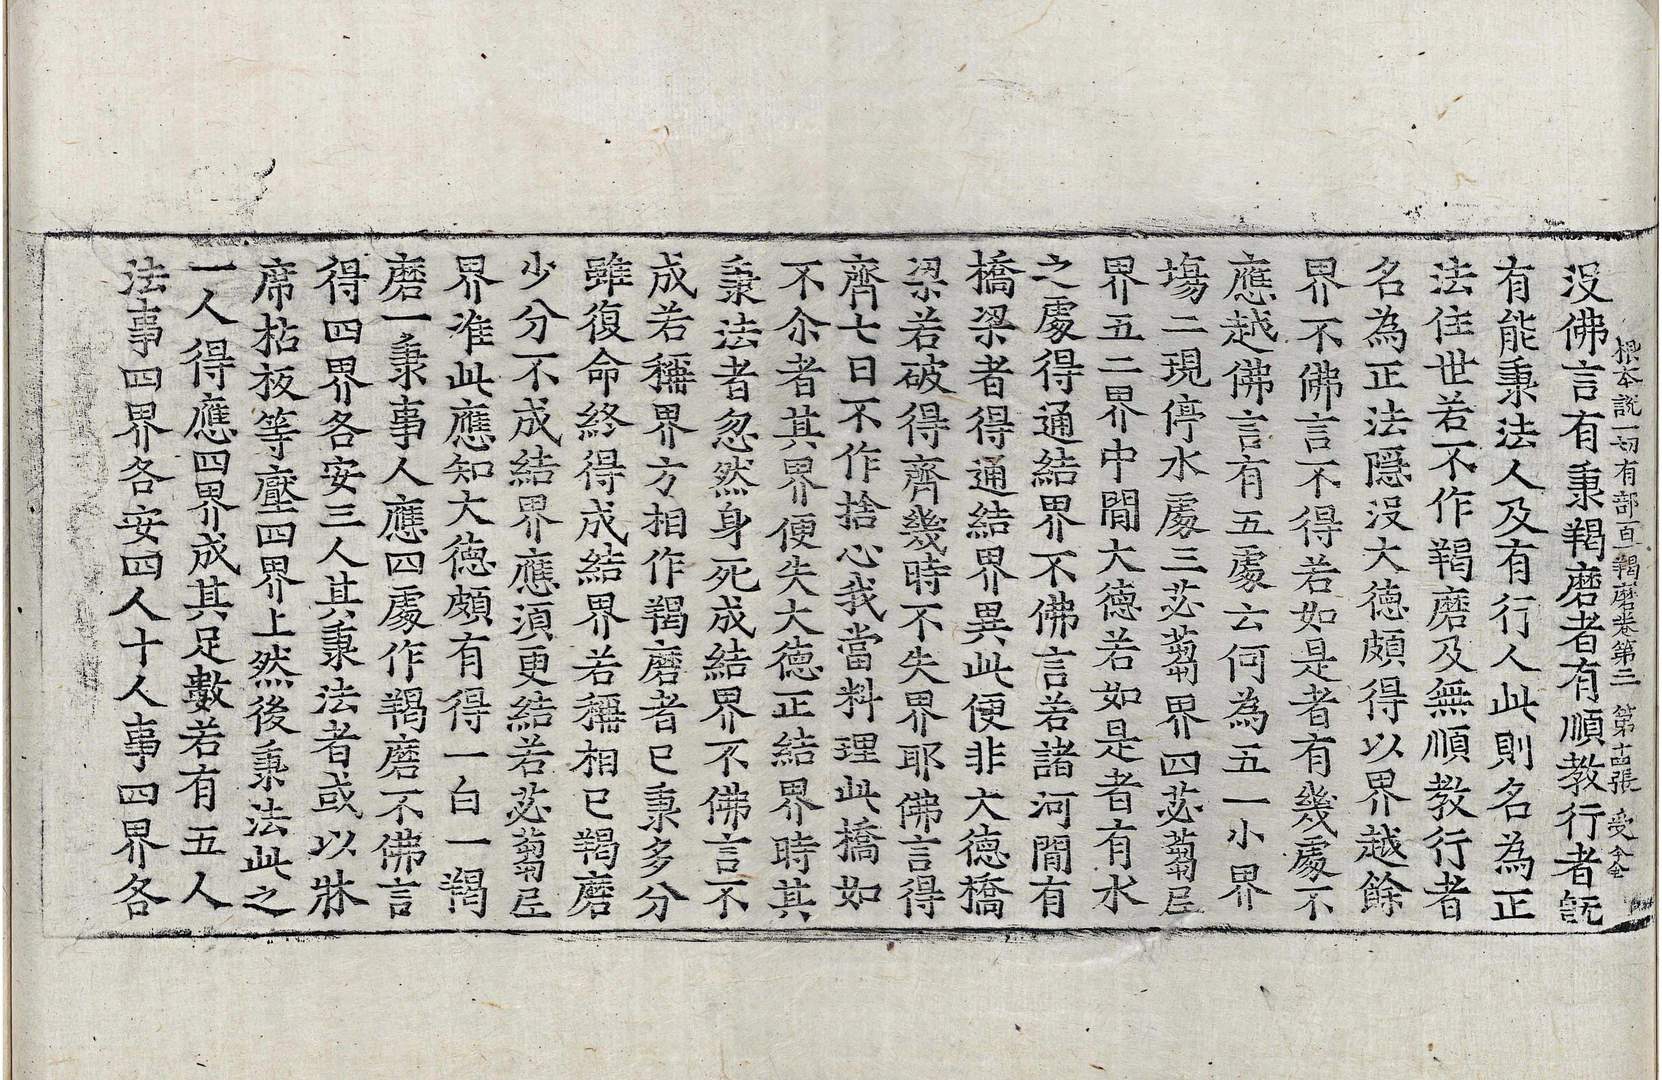 根本說一切有部百一羯磨卷第三 第十四張 受
沒佛言有秉羯磨者有順教行者旣
有能秉法人及有行人此則名為正
法住世若不作羯磨及無順教行者
名為正法隱沒大德頗得以界越餘
界不佛言不得若如是者有幾處不
應越佛言有五處云何為五一小界
塲二現停水處三苾蒭界四苾蒭尼
界五二界中閒大德若如是者有水
之處得通結界不佛言若諸河閒有
橋梁者得通結界異此便非大德橋
梁若破得齊幾時不失界耶佛言得
齊七日不作捨心我當料理此橋如
不尒者其界便失大德正結界時其
秉法者忽然身死成結界不佛言不
成若稱界方相作羯磨者已秉多分
雖復命終得成結界若稱相已羯磨
少分不成結界應湏更結若苾蒭尼
界准此應知大德頗有得一白一羯
磨一秉事人應四處作羯磨不佛言
得四界各安三人其秉法者或以牀
席枯板等壓四界上然後秉法此之
一人得應四界成其足數若有五人
法事四界各安四人十人事四界各